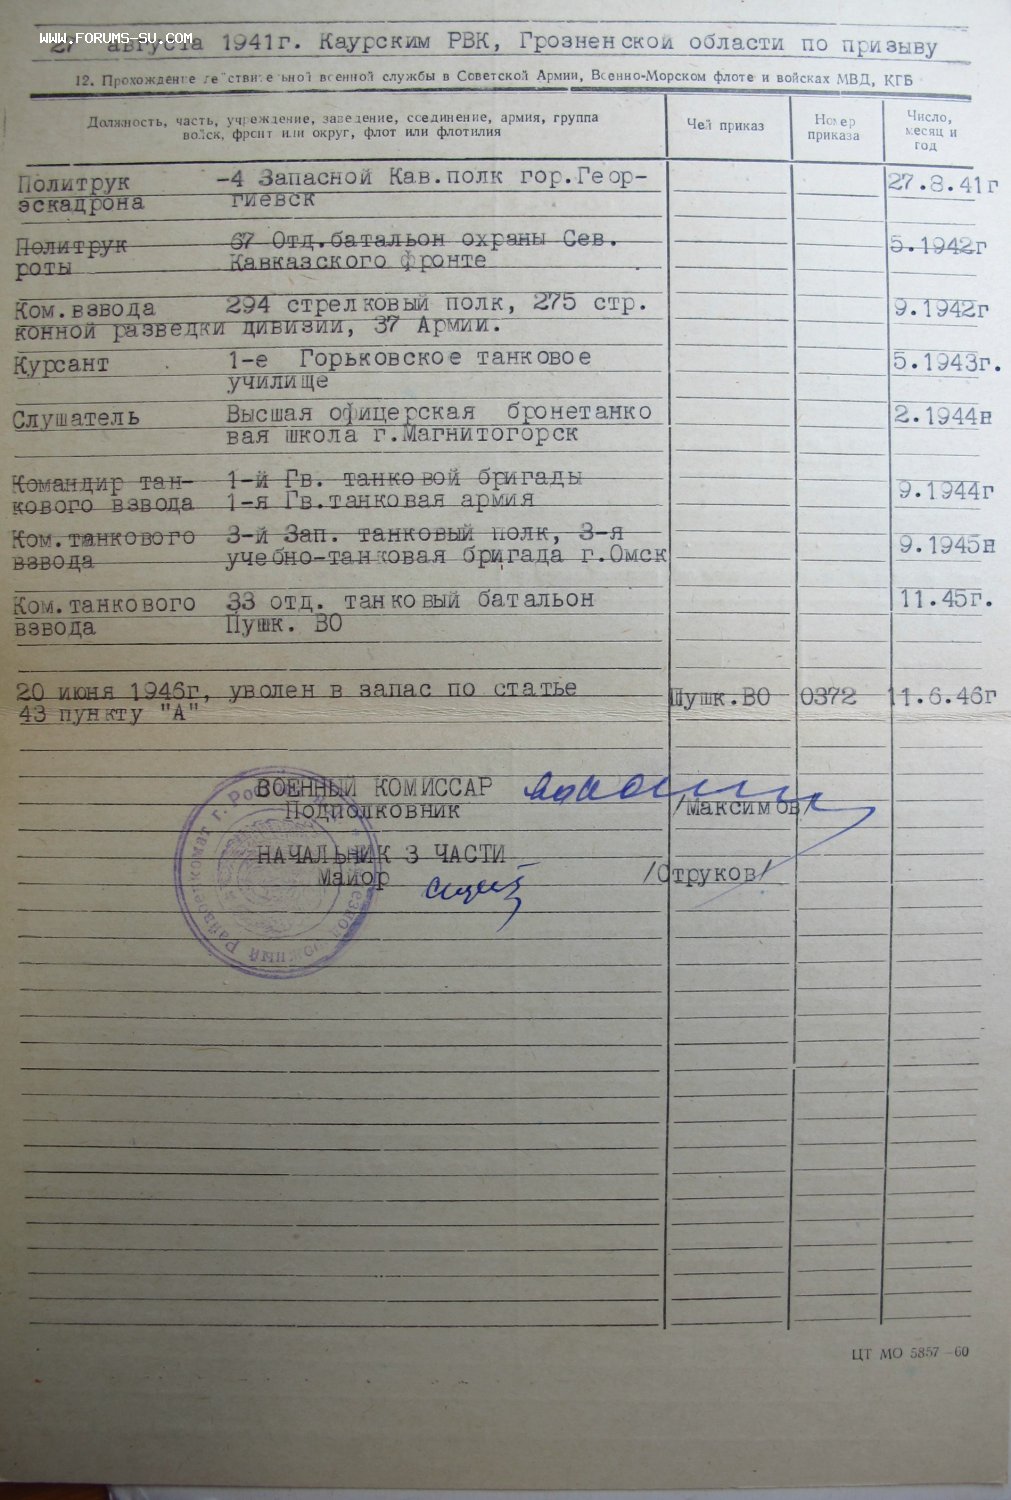 WWW.FORUMS-SU.COM
27 августа 1941г. Каурским РВК, Грозненской области по призыву
12. Прохождение действительной военной службы в Советской Армии, Военно-Морском флоте и войсках МВД, КГБ
Должность, часть, учреждение, заведение, соединение, армия, группа
войск, фронт или округ, флот или флотилия
Чей приказ
Номер
приказа
Число,
месяц и
год
Политрук -4 Запасной Кав.полк гор.Геор- 27.8.41г
эскадрона гиевск
Политрук 67 Отд.батальон охраны Сев. 5.1942г
роты Кавказского фронте
Ком.взвода 294 стрелковый полк, 275 стр. 9.1942г
конной разведки дивизии, 37 Армии.
Курсант 1-е Горьковское танковое 5.1943г.
училище
Слушатель Высшая офицерская бронетанко 2.1944н
вая школа г.Магнитогорск
Командир тан- 1-й Гв. танковой бригады 9.1944г
кового взвода 1-я Гв.танковая армия
Ком.танкового 3-й Зап. танковый полк, 3-я 9.1945н
взвода учебно-танковая бригада г.Омск
Ком.танкового 33 отд. танковый батальон 11.45г.
взвода Пушк. ВО
20 июня 1946г, уволен в запас по статье Пушк.ВО 0372 11.6.46г
43 пункту "А"
ВОЕННЫЙ КОМИССАР
Подполковник /Максимов/
НАЧАЛЬНИК 3 ЧАСТИ
Майор /Струков/
ЦТ МО 5857—60